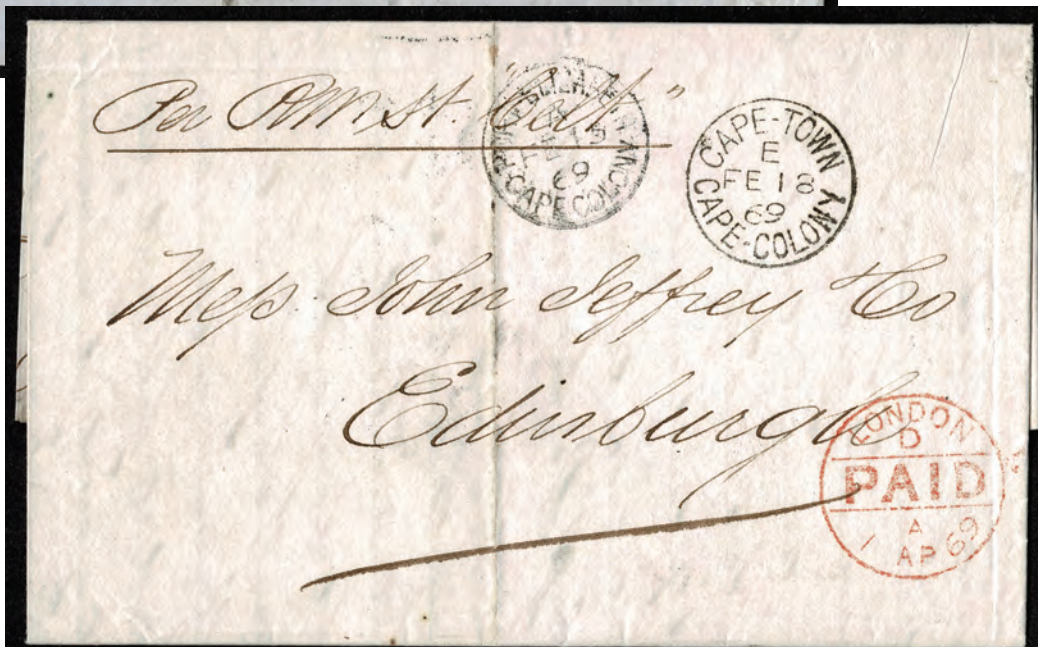 Per RM St. "Celt"
PORT ELIZABETH
69
CAPE COLONY
CAPE-TOWN
E
FE 18
69
CAPE-COLONY
Mess John Jeffrey & Co
Edinburgh
LONDON
D
PAID
A
1 AP 69